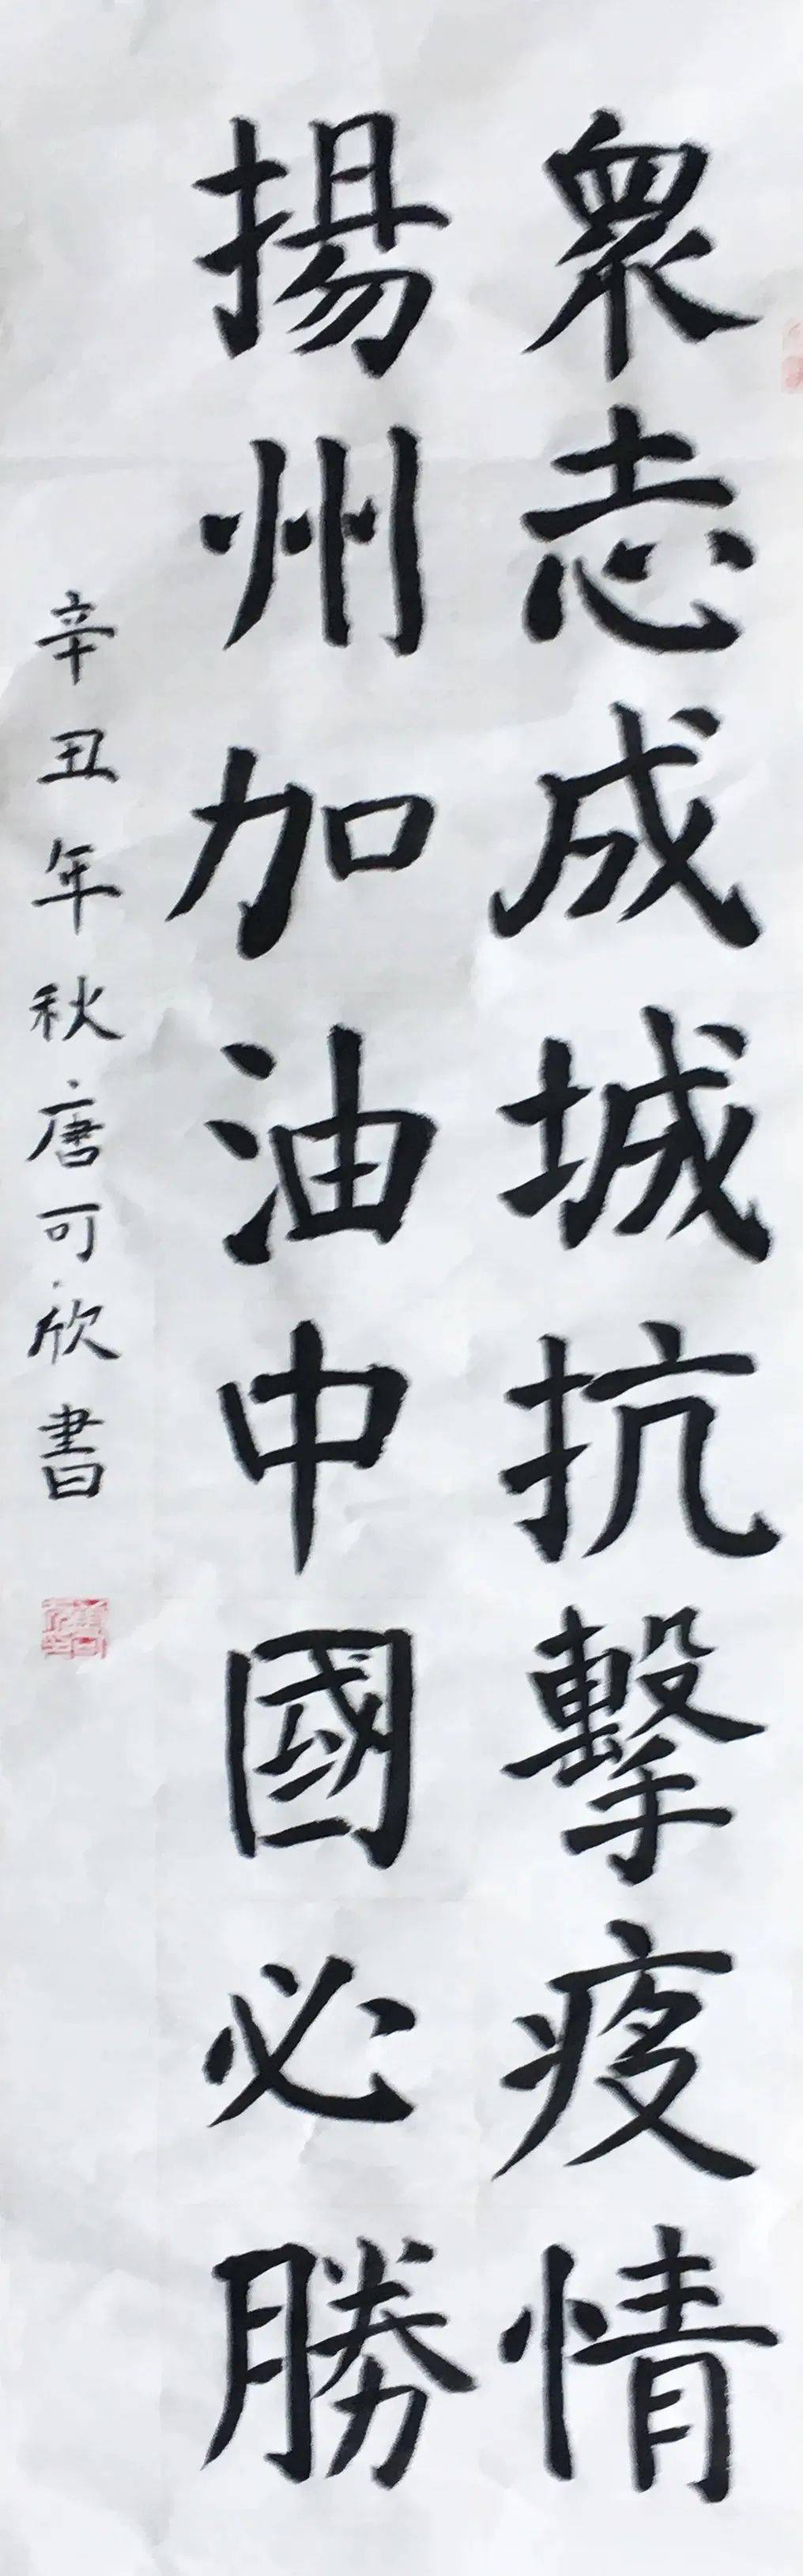 眾志成城抗擊疫情
揚州加油中國必勝
辛丑年秋唐可欣書